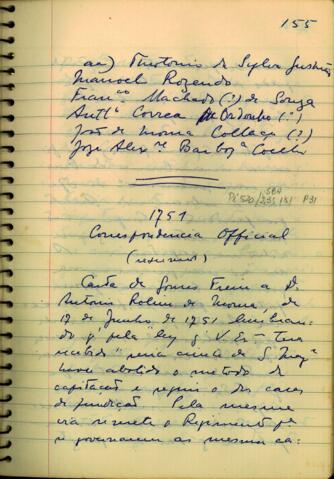 155
aa) Theotonio da Sylva Gusmão
Manoel Rozendo
Franco Machado (?) de Souza
Antto Correa Ordonho (?)
João de Moura Collaço (?)
Joze Alexre Barboza Coelho
1751
Correspondencia Official
(resumos)
Carta de Gomes Freire a D.
Antonio Rolim de Moura, de
17 de Junho de 1751
do q pela "ley q V. Ex.
recebido" S. Mage
houve abolido o methodo de
capitação e o das casas
de fundição. Pela mesma
via remete o Regimento pa
se governarem as mesmas ca-